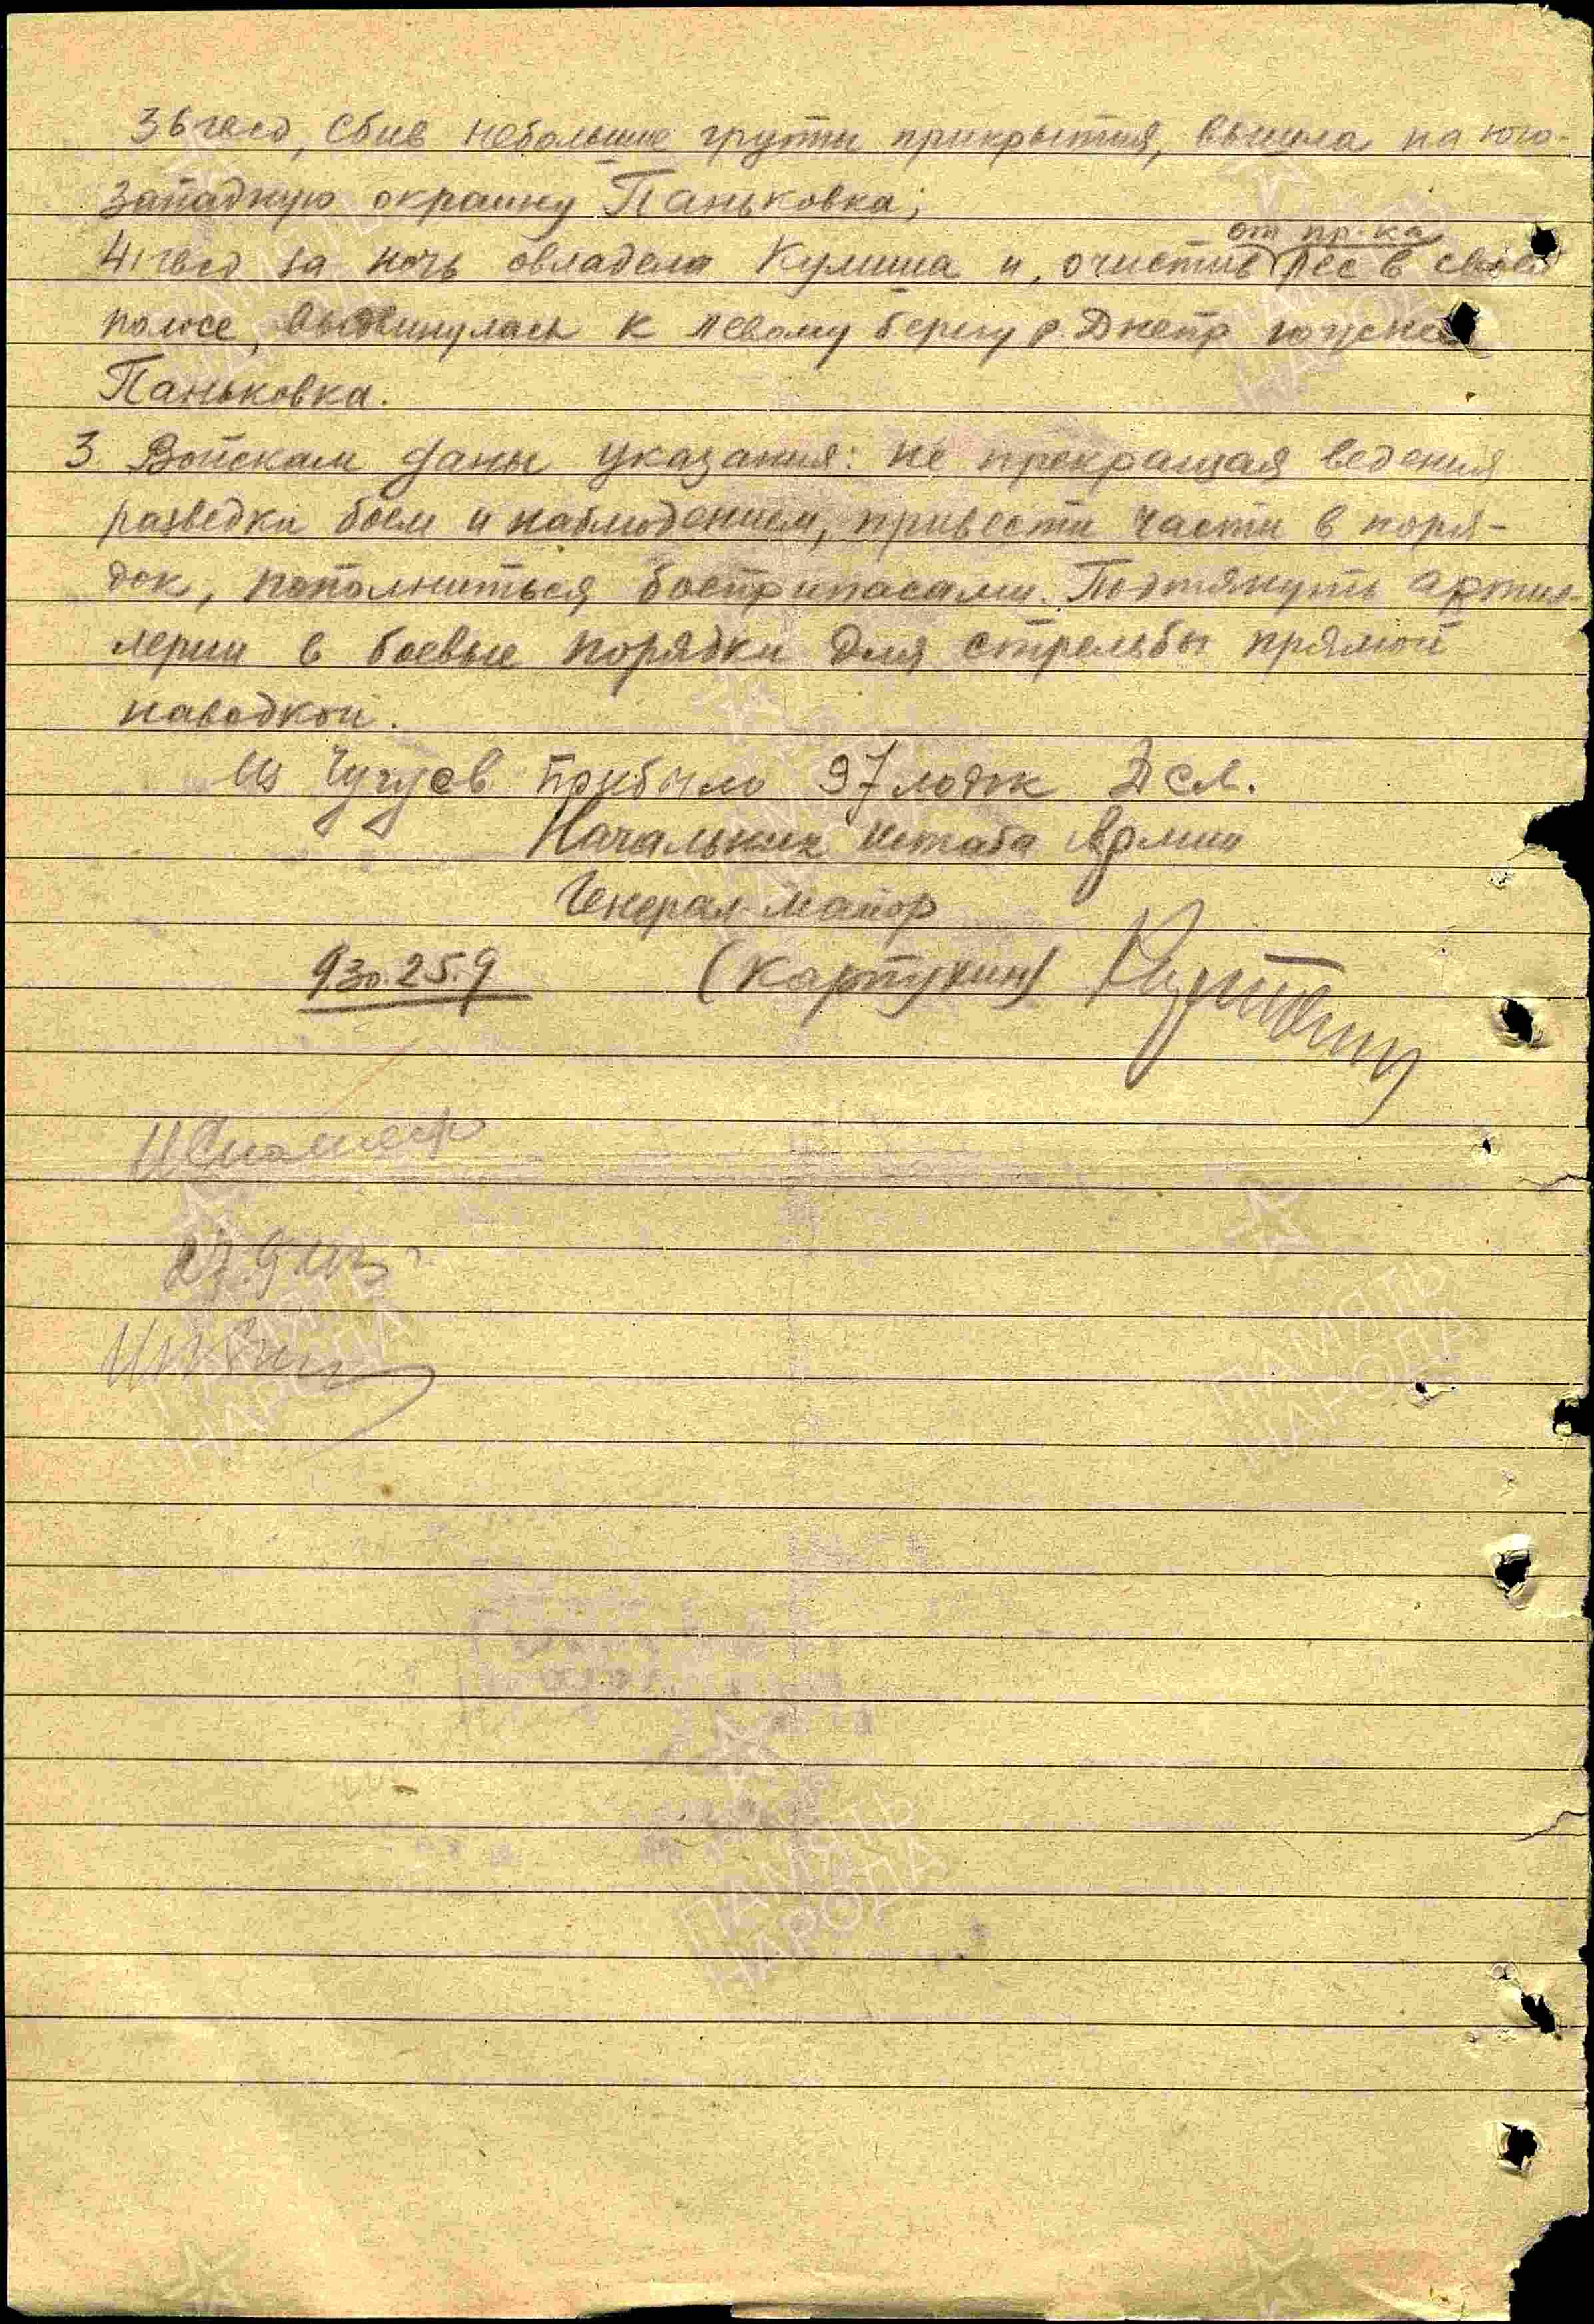 36 гвсд, сбив небольшие группы прикрытия, вышла на юго-
западную окраину Паньковка;
от пр-ка
41 гвсд за ночь овладела Кулиша и, очистив лес в своей
полосе, выдвинулась к левому берегу р. Днепр южнее
Паньковка.
3. Войскам даны указания: не прекращая ведения
разведки боем и наблюдением, привести части в поря-
док, пополниться боеприпасами. Подтянуть артил-
лерии в боевые порядки для стрельбы прямой
наводкой.
Из Чугуев прибыло 97 лодок ДСЛ.
Начальник штаба Армии
Генерал-майор
930. 25.9 (Карпухин)
27.9.43
ПАМЯТЬ
НАРОДА
ПАМЯТЬ
НАРОДА
ПАМЯТЬ
НАРОДА